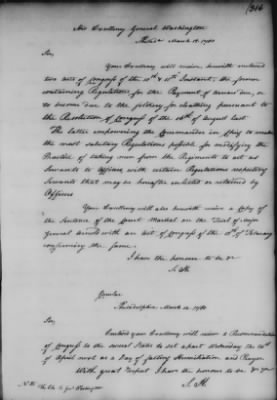 His Excellency General Washington
Philada. March 13. 1780
Sir,
Your Excellency will receive, herewith enclosed
two acts of Congress of the 10th & 11th Instant, the former
containing Regulations for the Payment of Arrears due, or
to become due to the soldiery for cloathing pursuant to
the Resolution of Congress of the 16th of August last.
The latter empowering the Commander in Chief to make
the most salutary Regulations possible for modifying the
Practice of taking men from the Regiments to act as
Servants to Officers with certain Regulations respecting
Servants that may be hereafter enlisted or retained by
Officers
Your Excellency will also herewith receive a Copy of
the Sentence of the Court Martial on the Trial of Major
General Arnold with an act of Congress of the 12th of February
confirming the same.
I have the honour to be &c
S. H.
Circular
Philadelphia March 1780
Sir,
Enclosed your Excellency will receive a Recommendation
of Congress to the several States to set apart Wednesday the 26th
of April next as a Day of fasting Humiliation and Prayer
With great respect I have the honour to be &c
S. H.